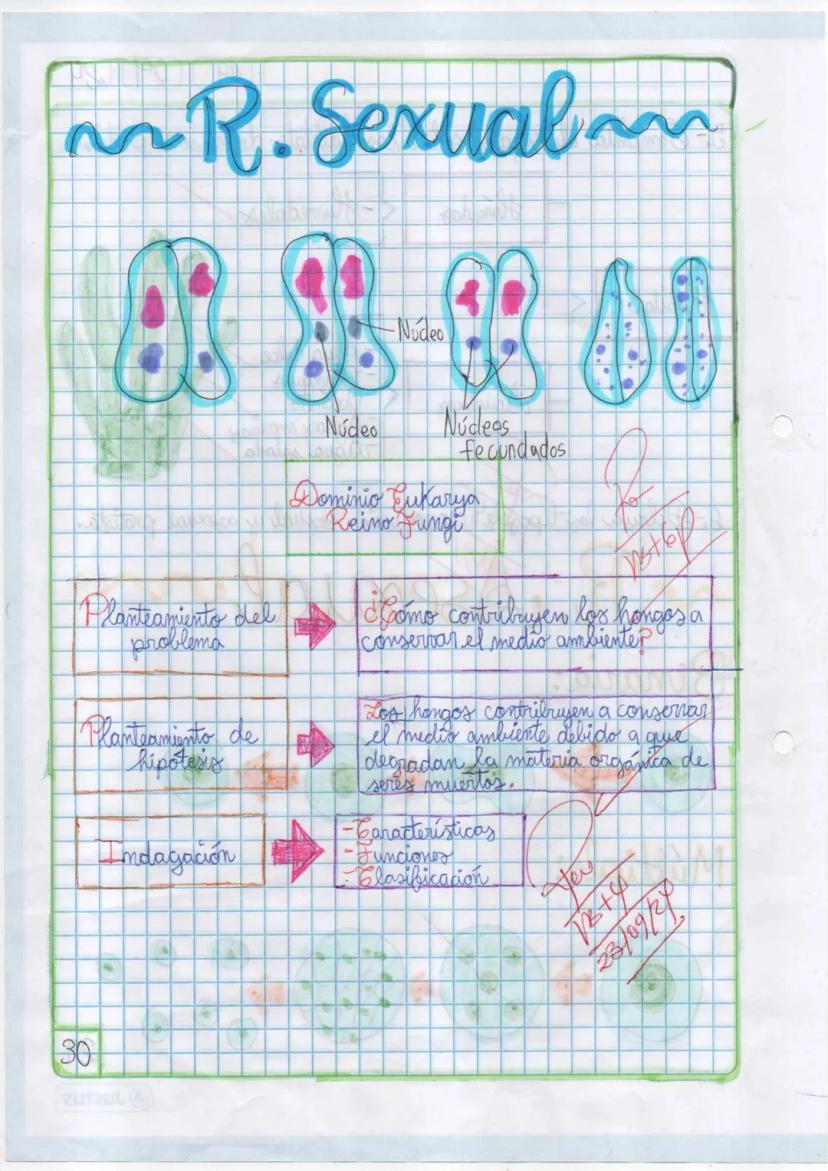 R. Sexual
Núcleo
Núcleo
Núcleos
fecundados
Dominio Eukarya
Reino Fungi
Planteamiento del
problema
¿Cómo contribuyen los hongos a
conservar el medio ambiente?
Planteamiento de
hipótesis
Los hongos contribuyen a conservar
el medio ambiente debido a que
degradan la materia orgánica de
seres muertos.
Indagación
-Características
-Funciones
-Clasificación
23/09/24
30
Justus